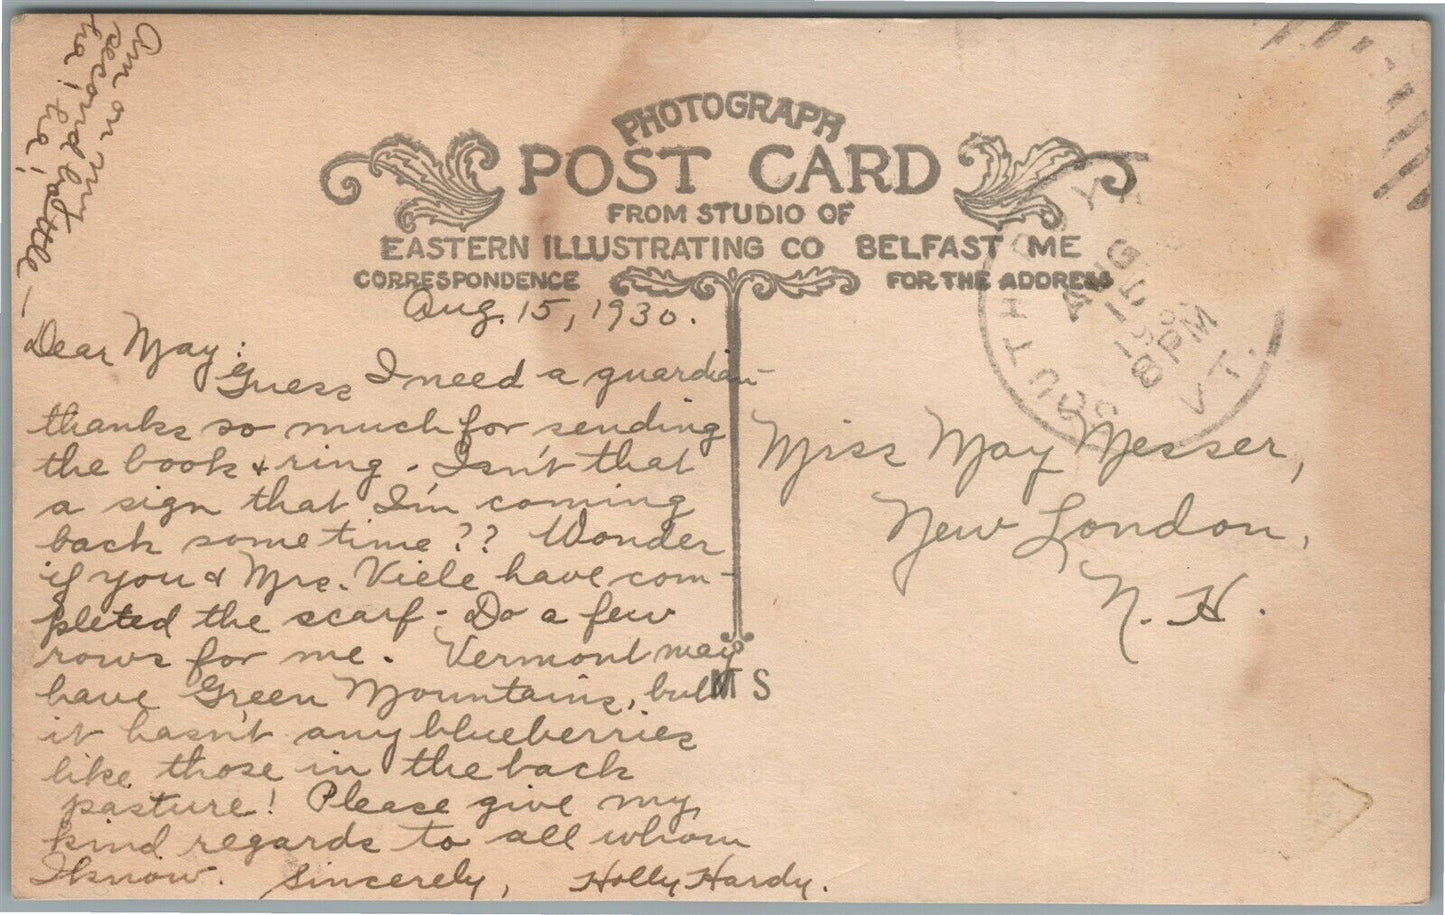 Am on my
second bottle –
ha! ha!
PHOTOGRAPH
POST CARD
FROM STUDIO OF
EASTERN ILLUSTRATING CO BELFAST ME
CORRESPONDENCE
FOR THE ADDRESS
Aug. 15, 1930.
Dear May:
Guess I need a guardian –
thanks so much for sending
the book & ring. Isn't that
a sign that I'm coming
back sometime?? Wonder
if you & Mrs. Viele have com-
pleted the scarf – Do a few
rows for me. Vermont may
have Green Mountains, but
it hasn't any blueberries
like those in the back
pasture! Please give my
kind regards to all whom
I know. Sincerely, Holly Hardy.
M S
SOUTH
AUG 15
8 PM
VT.
Miss May Messer,
New London,
N. H.